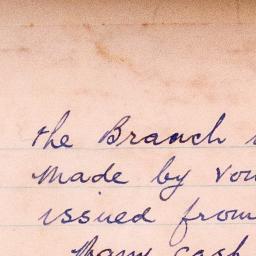 the Branch
made by you
issued from
Many cash